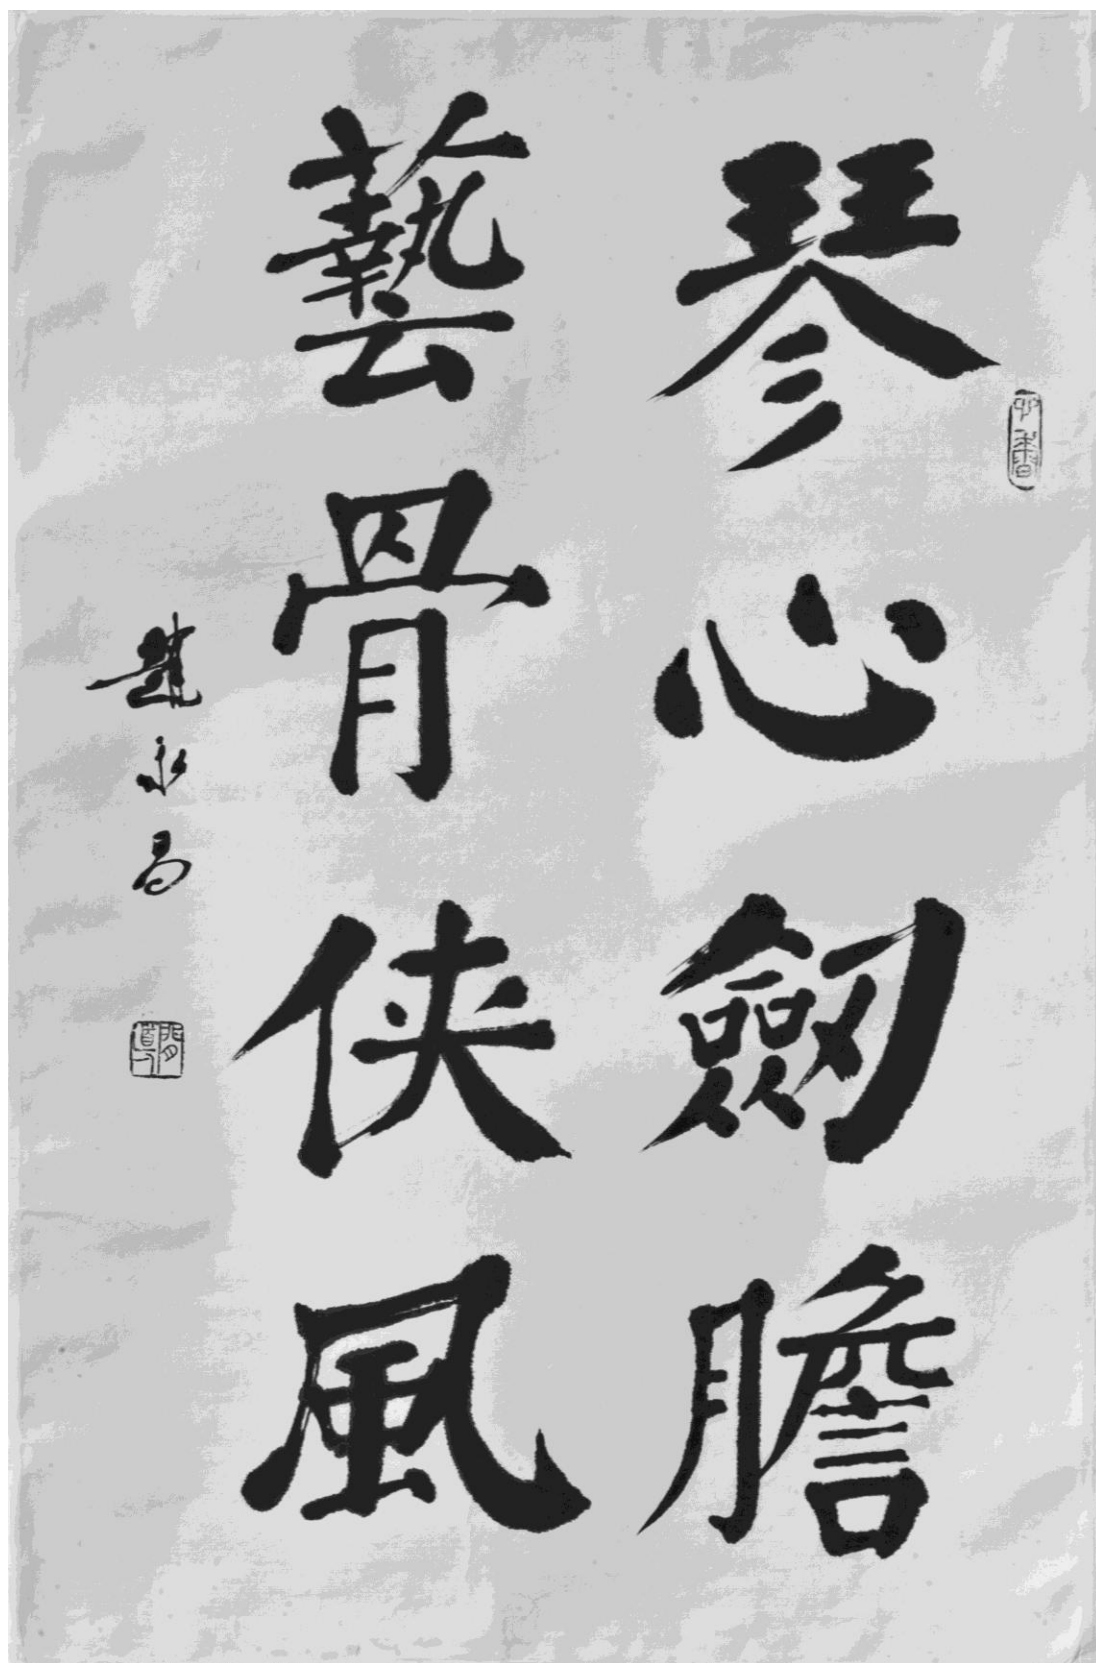 琴心劍膽
藝骨俠風
趙永昌